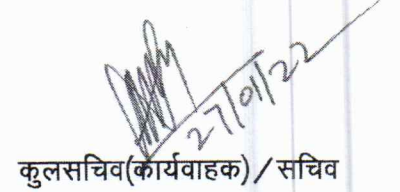 27/01/22
कुलसचिव(कार्यवाहक)/सचिव